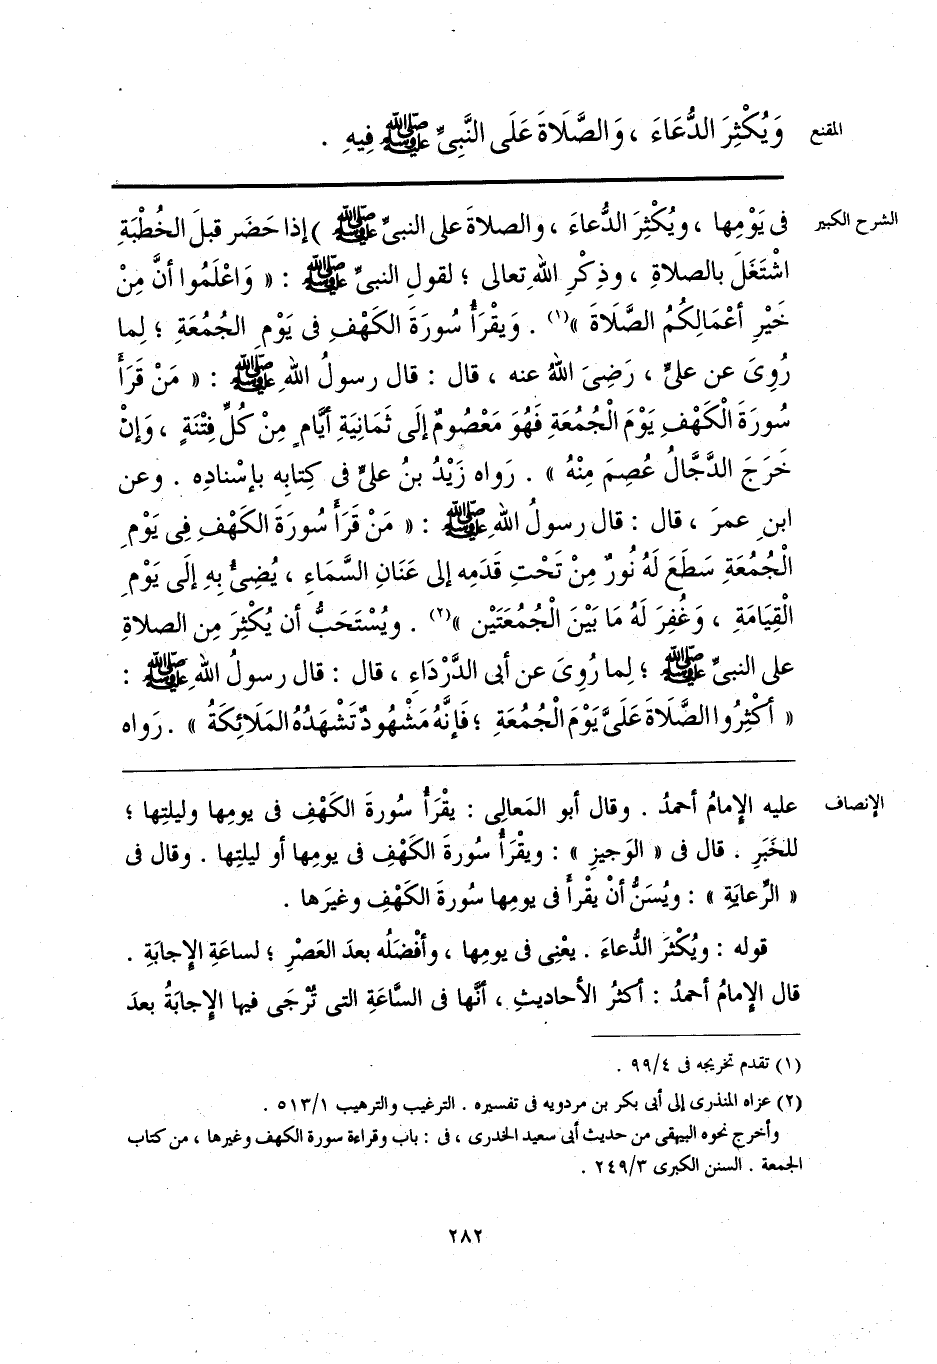 المقنع وَيُكْثِرَ الدُّعَاءَ ، وَالصَّلَاةَ عَلَى النَّبِىِّ ﷺ فِيهِ .
الشرح الكبير فى يَوْمِها ، ويُكْثِرَ الدُّعاءَ ، والصلاةَ على النبىِّ ﷺ ) إذا حَضَر قبلَ الخُطْبَةِ
اشْتَغَلَ بالصلاةِ ، وذِكْرِ اللهِ تعالى ؛ لقولِ النبىِّ ﷺ : « وَاعْلَمُوا أنَّ مِنْ
خَيْرِ أعْمَالِكُمُ الصَّلَاةَ »(١) . وَيقْرَأُ سُورَةَ الكَهْفِ فى يَوْمِ الجُمُعَةِ ؛ لِما
رُوِىَ عن علىٍّ ، رَضِىَ اللهُ عنه ، قال : قال رسولُ اللهِ ﷺ : « مَنْ قَرَأَ
سُورَةَ الْكَهْفِ يَوْمَ الْجُمُعَةِ فَهُوَ مَعْصُومٌ إلَى ثَمَانِيَةِ أيَّامٍ مِنْ كُلِّ فِتْنَةٍ ، وَإنْ
خَرَجَ الدَّجَّالُ عُصِمَ مِنْهُ » . رَواه زَيْدُ بنُ علىٍّ فى كِتابِه بإسْنادِه . وعن
ابنِ عمرَ ، قال : قال رسولُ اللهِ ﷺ : « مَنْ قَرَأَ سُورَةَ الكَهْفِ فِى يَوْمِ
الْجُمُعَةِ سَطَعَ لَهُ نُورٌ مِنْ تَحْتِ قَدَمِه إلى عَنَانِ السَّمَاءِ ، يُضِىُٔ بِهِ إلَى يَوْمِ
الْقِيَامَةِ ، وَغُفِرَ لَهُ مَا بَيْنَ الْجُمُعَتَيْنِ »(٢) . ويُسْتَحَبُّ أن يُكْثِرَ مِن الصلاةِ
على النبىِّ ﷺ ؛ لِما رُوِىَ عن أبى الدَّرْدَاءِ ، قال : قال رسولُ اللهِ ﷺ :
« أكْثِرُوا الصَّلَاةَ عَلَىَّ يَوْمَ الْجُمُعَةِ ؛ فَإنَّهُ مَشْهُودٌ تَشْهَدُهُ المَلَائِكَةُ » . رَواه
الإنصاف عليه الإِمامُ أحمدُ . وقال أبو المَعالِى : يقْرَأُ سُورةَ الكَهْفِ فى يومِها وليلتِها ؛
للخَبَرِ . قال فى « الوَجيزِ » : ويقْرَأُ سُورةَ الكَهْفِ فى يومِها أو ليلتِها . وقال فى
« الرِّعايَةِ » : ويُسَنُّ أنْ يقْرأَ فى يومِها سُورةَ الكَهْفِ وغيرَها .
قوله : ويُكْثرَ الدُّعاءَ . يعْنِى فى يومِها ، وأفْضَلُه بعدَ العَصْرِ ؛ لساعَةِ الإِجابَةِ .
قال الإِمامُ أحمدُ : أكثرُ الأحاديثِ ، أنَّها فى السَّاعَةِ التى تُرْجَى فيها الإِجابَةُ بعدَ
(١) تقدم تخريجه فى ٩٩/٤ .
(٢) عزاه المنذرى إلى أبى بكر بن مردويه فى تفسيره . الترغيب والترهيب ٥١٣/١ .
وأخرج نحوه البيهقى من حديث أبى سعيد الخدرى ، فى : باب وقراءة سورة الكهف وغيرها ، من كتاب
الجمعة . السنن الكبرى ٢٤٩/٣ .
٢٨٢